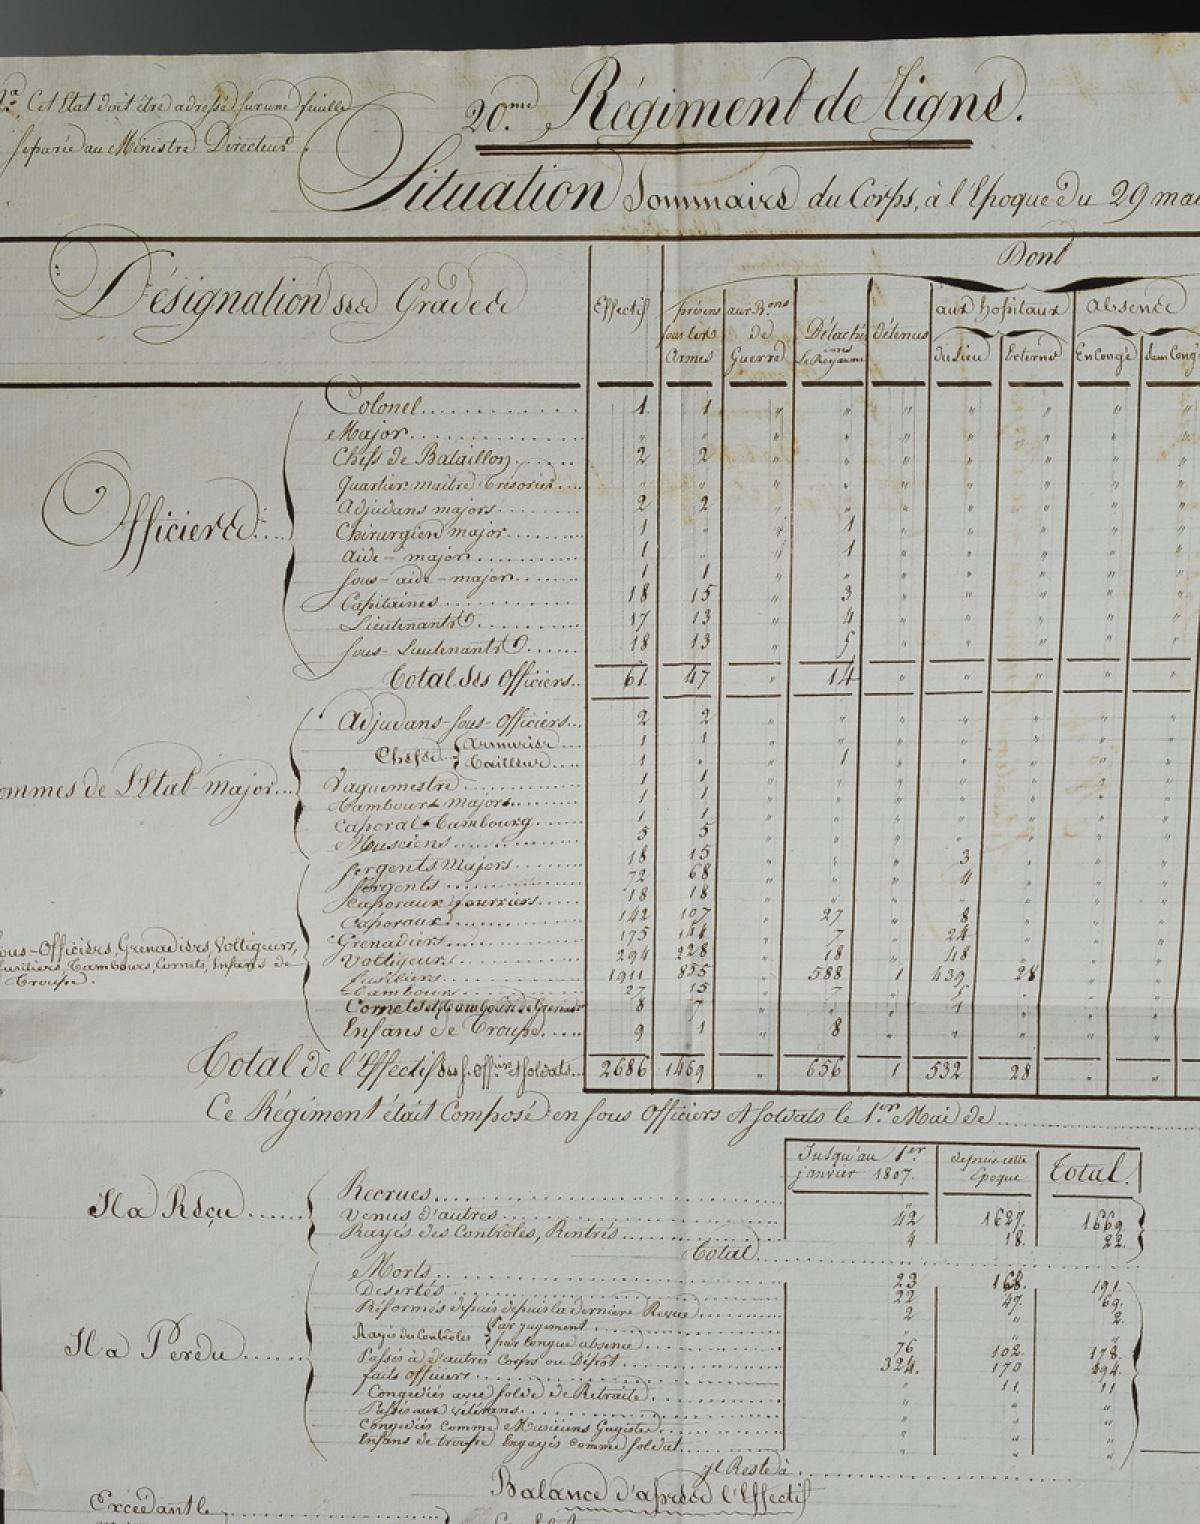 Cet Etat doit être adressé sur une feuille
séparée au Ministre Directeur.
20.me Régiment de Ligne.
Situation Sommaire du Corps, à l'Epoque du 29 mai
Désignation des Grades
Effectif
Dont
présens sous les Armes
aux P.ons de Guerre
Détachés dans le Royaume
détenus
aux hopitaux
du Lieu
Externe
absence
En Congé
Sans Congé
Officiers
Colonel 1 1 " " " " " " "
Major " " " " " " " " "
Chefs de Bataillon 2 2 " " " " " " "
Quartier maitre Trésorier " " " " " " " " "
Adjudans majors 2 2 " " " " " " "
Chirurgien major 1 " " 1 " " " " "
aide-major 1 " " 1 " " " " "
sous-aide-major 1 1 " " " " " " "
Capitaines 18 15 " 3 " " " " "
Lieutenants 17 13 " 4 " " " " "
sous-Lieutenants 18 13 " 5 " " " " "
Total des Officiers 61 47 " 14 " " " " "
ommes de l'Etat-major
Adjudans-sous-Officiers 2 2 " " " " " " "
Chefs Armurier 1 1 " " " " " " "
Tailleur 1 " " 1 " " " " "
Vaguemestre 1 1 " " " " " " "
Tambour major 1 1 " " " " " " "
Caporal Tambour 1 1 " " " " " " "
Musiciens 5 5 " " " " " " "
ous-Officiers, Grenadiers, Voltigeurs,
usiliers, Tambours, Cornets, Enfans de
Troupe.
Sergents Majors 18 15 " " " 3 " " "
Sergents 72 68 " " " 4 " " "
Caporaux fourriers 18 18 " " " " " " "
Caporaux 142 107 " 27 " 8 " " "
Grenadiers 175 144 " 7 " 24 " " "
Voltigeurs 294 228 " 18 " 48 " " "
fusiliers 1911 855 " 588 1 439 28 " "
Tambours 27 15 " 7 " 5 " " "
Cornets et Tambours de Grenad. 8 7 " " " 1 " " "
Enfans de Troupe 9 1 " 8 " " " " "
Total de l'Effectif des s. Off.iers et soldats 2686 1469 " 656 1 532 28 " "
Ce Régiment était Composé en sous Officiers et soldats le 1.er Mai de
Jusqu'au 1.er janvier 1807.
depuis cette Epoque
Total.
Il a Reçu
Recrues 42 1627. 1669.
Venus d'autres 4 18. 22.
Rayés des Contrôles, Rentrés
Total
Il a Perdu
Morts 23 168. 191.
Desertés 22 47. 69.
Réformés depuis depuis la derniere Revue 2 " 2.
Rayés des Contrôles par jugement " " "
par longue absence 76 102. 178.
Passés à d'autres Corps ou Dépôt 324. 170 494.
faits officiers " 11. 11
Congediés avec solde de Retraite " " "
Passés aux vétérans " " "
Congediés comme Musiciens Gagistes " " "
Enfans de troupe Engagés comme soldat " " "
Il Reste à
Balance d'après l'Effectif
Excédant le